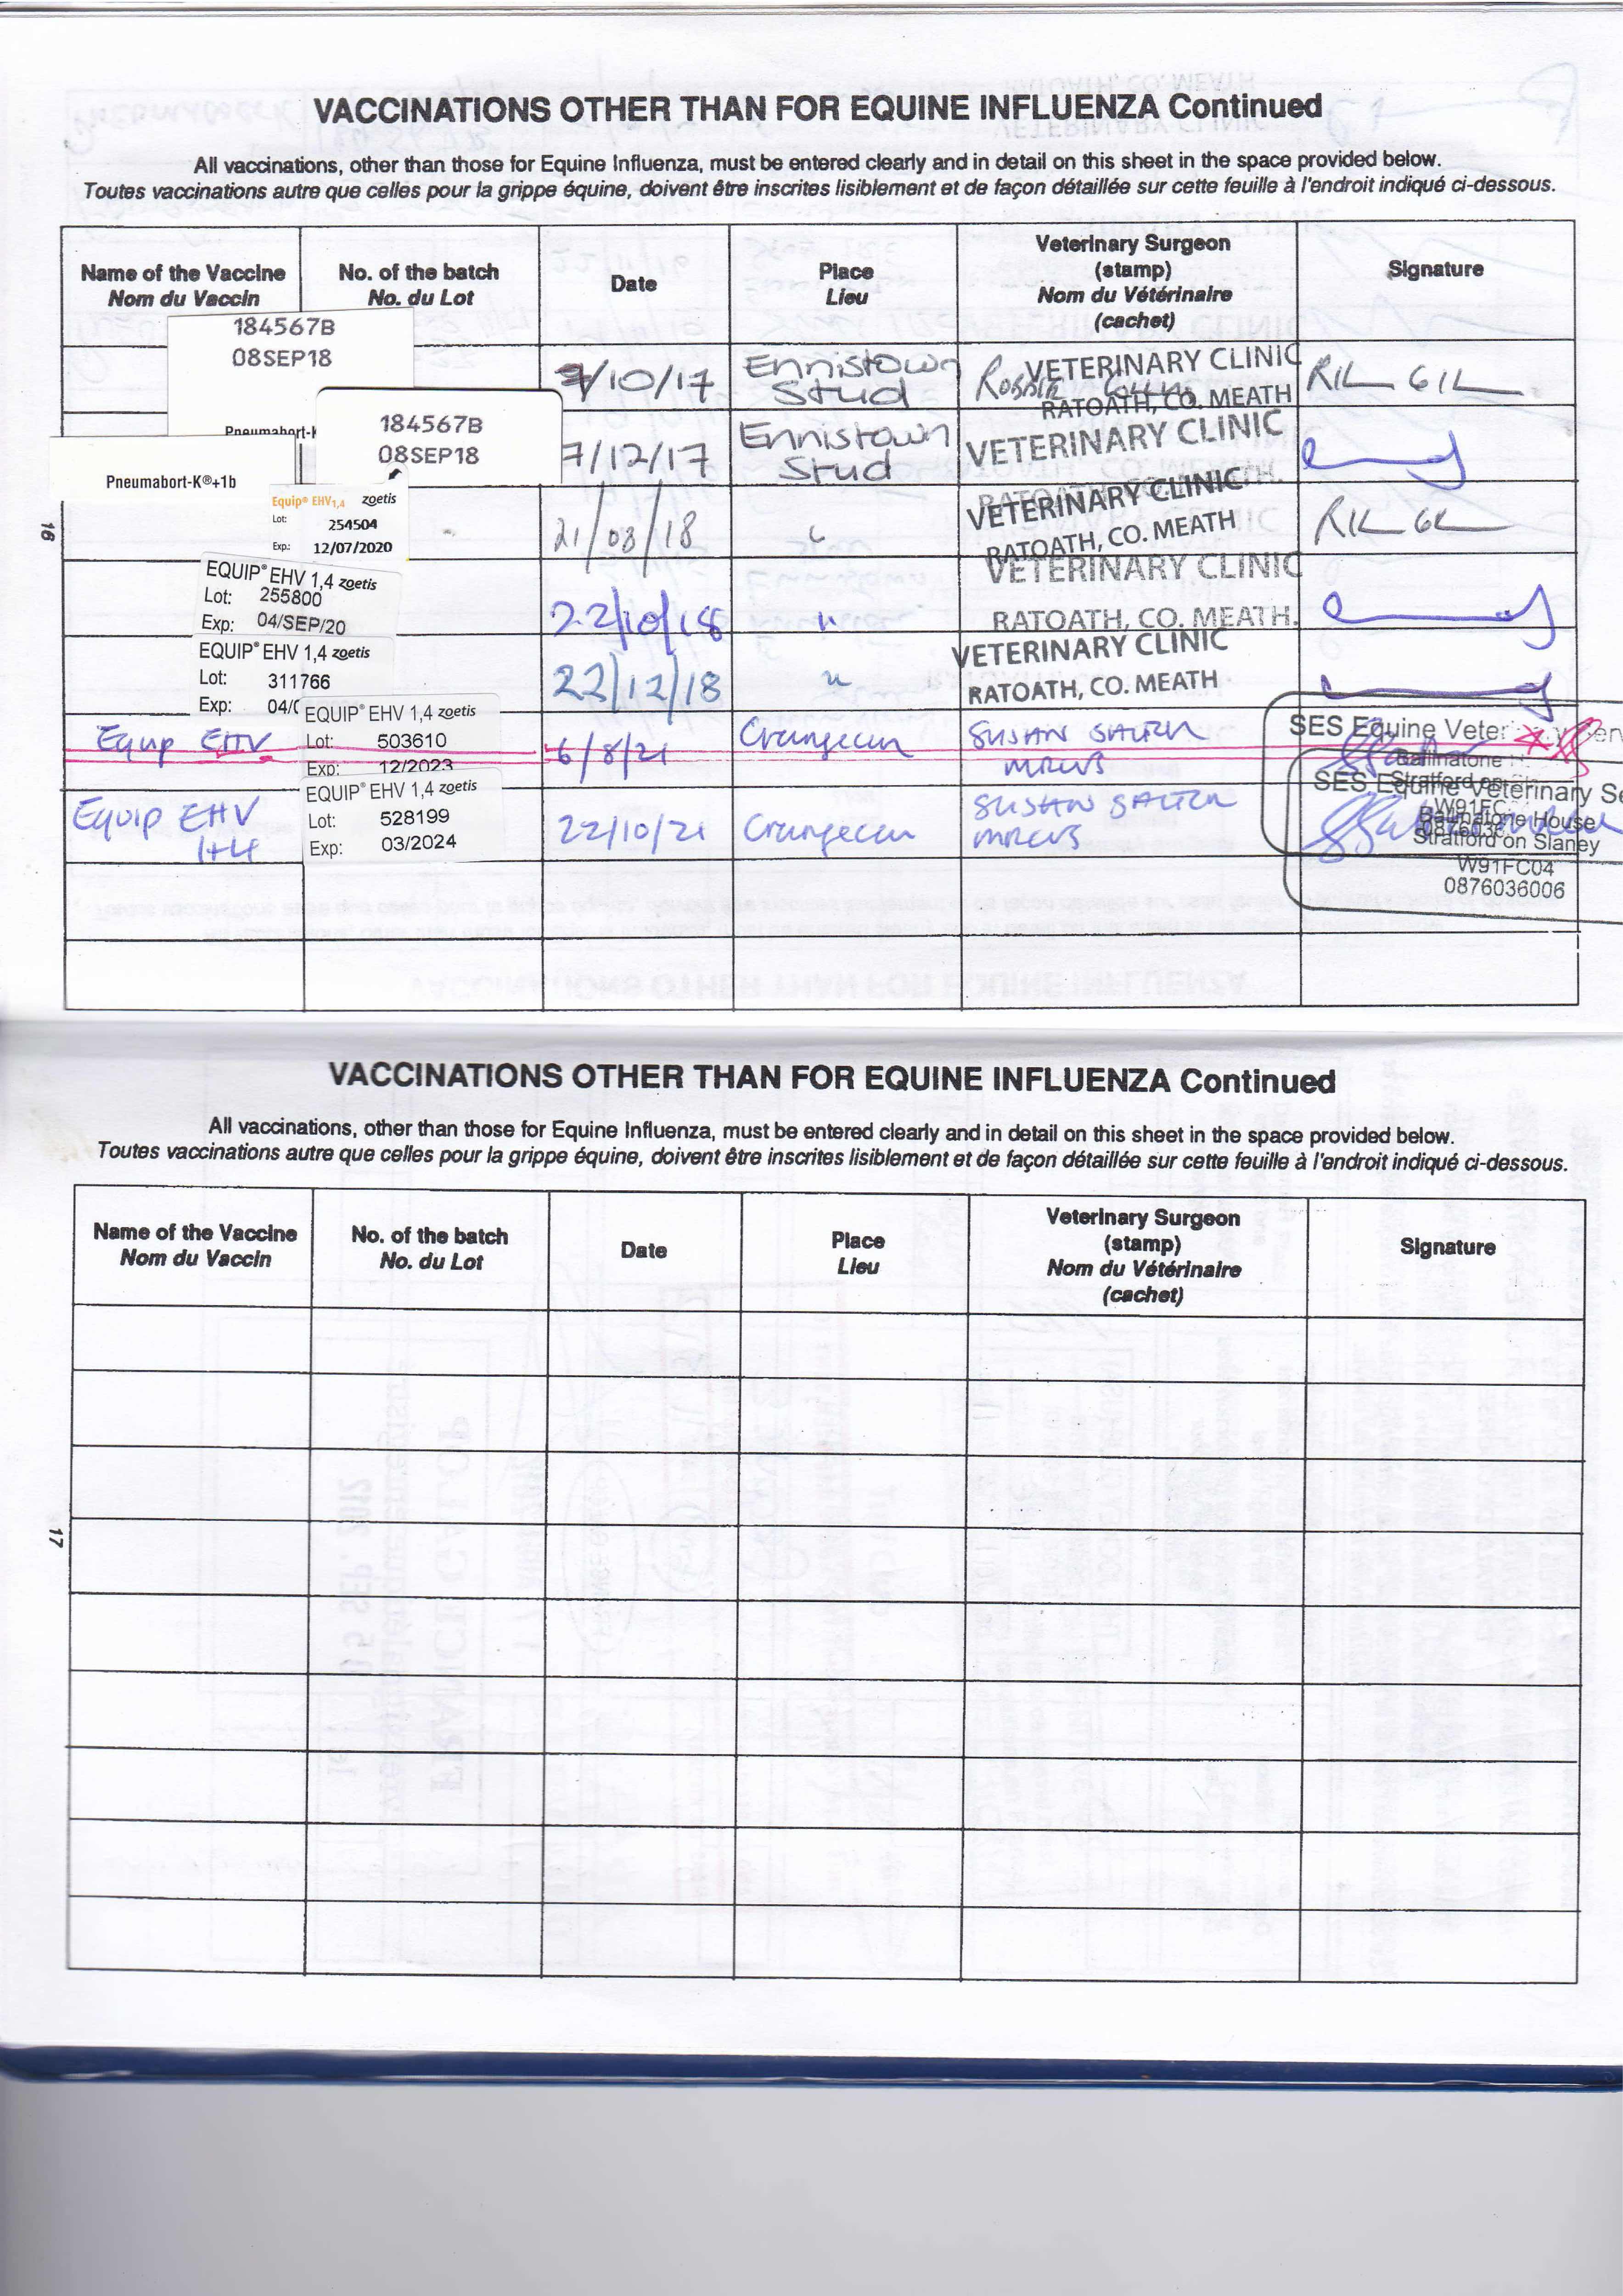 VACCINATIONS OTHER THAN FOR EQUINE INFLUENZA Continued
All vaccinations, other than those for Equine Influenza, must be entered clearly and in detail on this sheet in the space provided below.
Toutes vaccinations autre que celles pour la grippe équine, doivent être inscrites lisiblement et de façon détaillée sur cette feuille à l'endroit indiqué ci-dessous.
Name of the Vaccine
Nom du Vaccin
No. of the batch
No. du Lot
Date
Place
Lieu
Veterinary Surgeon
(stamp)
Nom du Vétérinaire
(cachet)
Signature
184567B
08SEP18
/10/17
Ennistown
Stud
VETERINARY CLINIC
RATOATH, CO. MEATH
Pneumabort-K
184567B
08SEP18
7/12/17
Ennistown
Stud
VETERINARY CLINIC
RATOATH, CO. MEATH.
Pneumabort-K®+1b
Equip® EHV1,4 zoetis
Lot: 254504
Exp.: 12/07/2020
21/03/18
VETERINARY CLINIC
RATOATH, CO. MEATH
EQUIP® EHV 1,4 zoetis
Lot: 255800
Exp: 04/SEP/20
22/10/18
"
VETERINARY CLINIC
RATOATH, CO. MEATH.
EQUIP® EHV 1,4 zoetis
Lot: 311766
Exp: 04/
22/12/18
"
VETERINARY CLINIC
RATOATH, CO. MEATH
Equip EHV
EQUIP® EHV 1,4 zoetis
Lot: 503610
Exp: 12/2023
6/8/21
SUSAN
MRCVS
SES Equine Veter
Ballinatone
Stratford on
W91FC
Equip EHV
1+4
EQUIP® EHV 1,4 zoetis
Lot: 528199
Exp: 03/2024
22/10/21
SUSAN
MRCVS
SES Equine Veterinary Se
Ballinatone House
Stratford on Slaney
W91FC04
0876036006
16
VACCINATIONS OTHER THAN FOR EQUINE INFLUENZA Continued
All vaccinations, other than those for Equine Influenza, must be entered clearly and in detail on this sheet in the space provided below.
Toutes vaccinations autre que celles pour la grippe équine, doivent être inscrites lisiblement et de façon détaillée sur cette feuille à l'endroit indiqué ci-dessous.
Name of the Vaccine
Nom du Vaccin
No. of the batch
No. du Lot
Date
Place
Lieu
Veterinary Surgeon
(stamp)
Nom du Vétérinaire
(cachet)
Signature
17